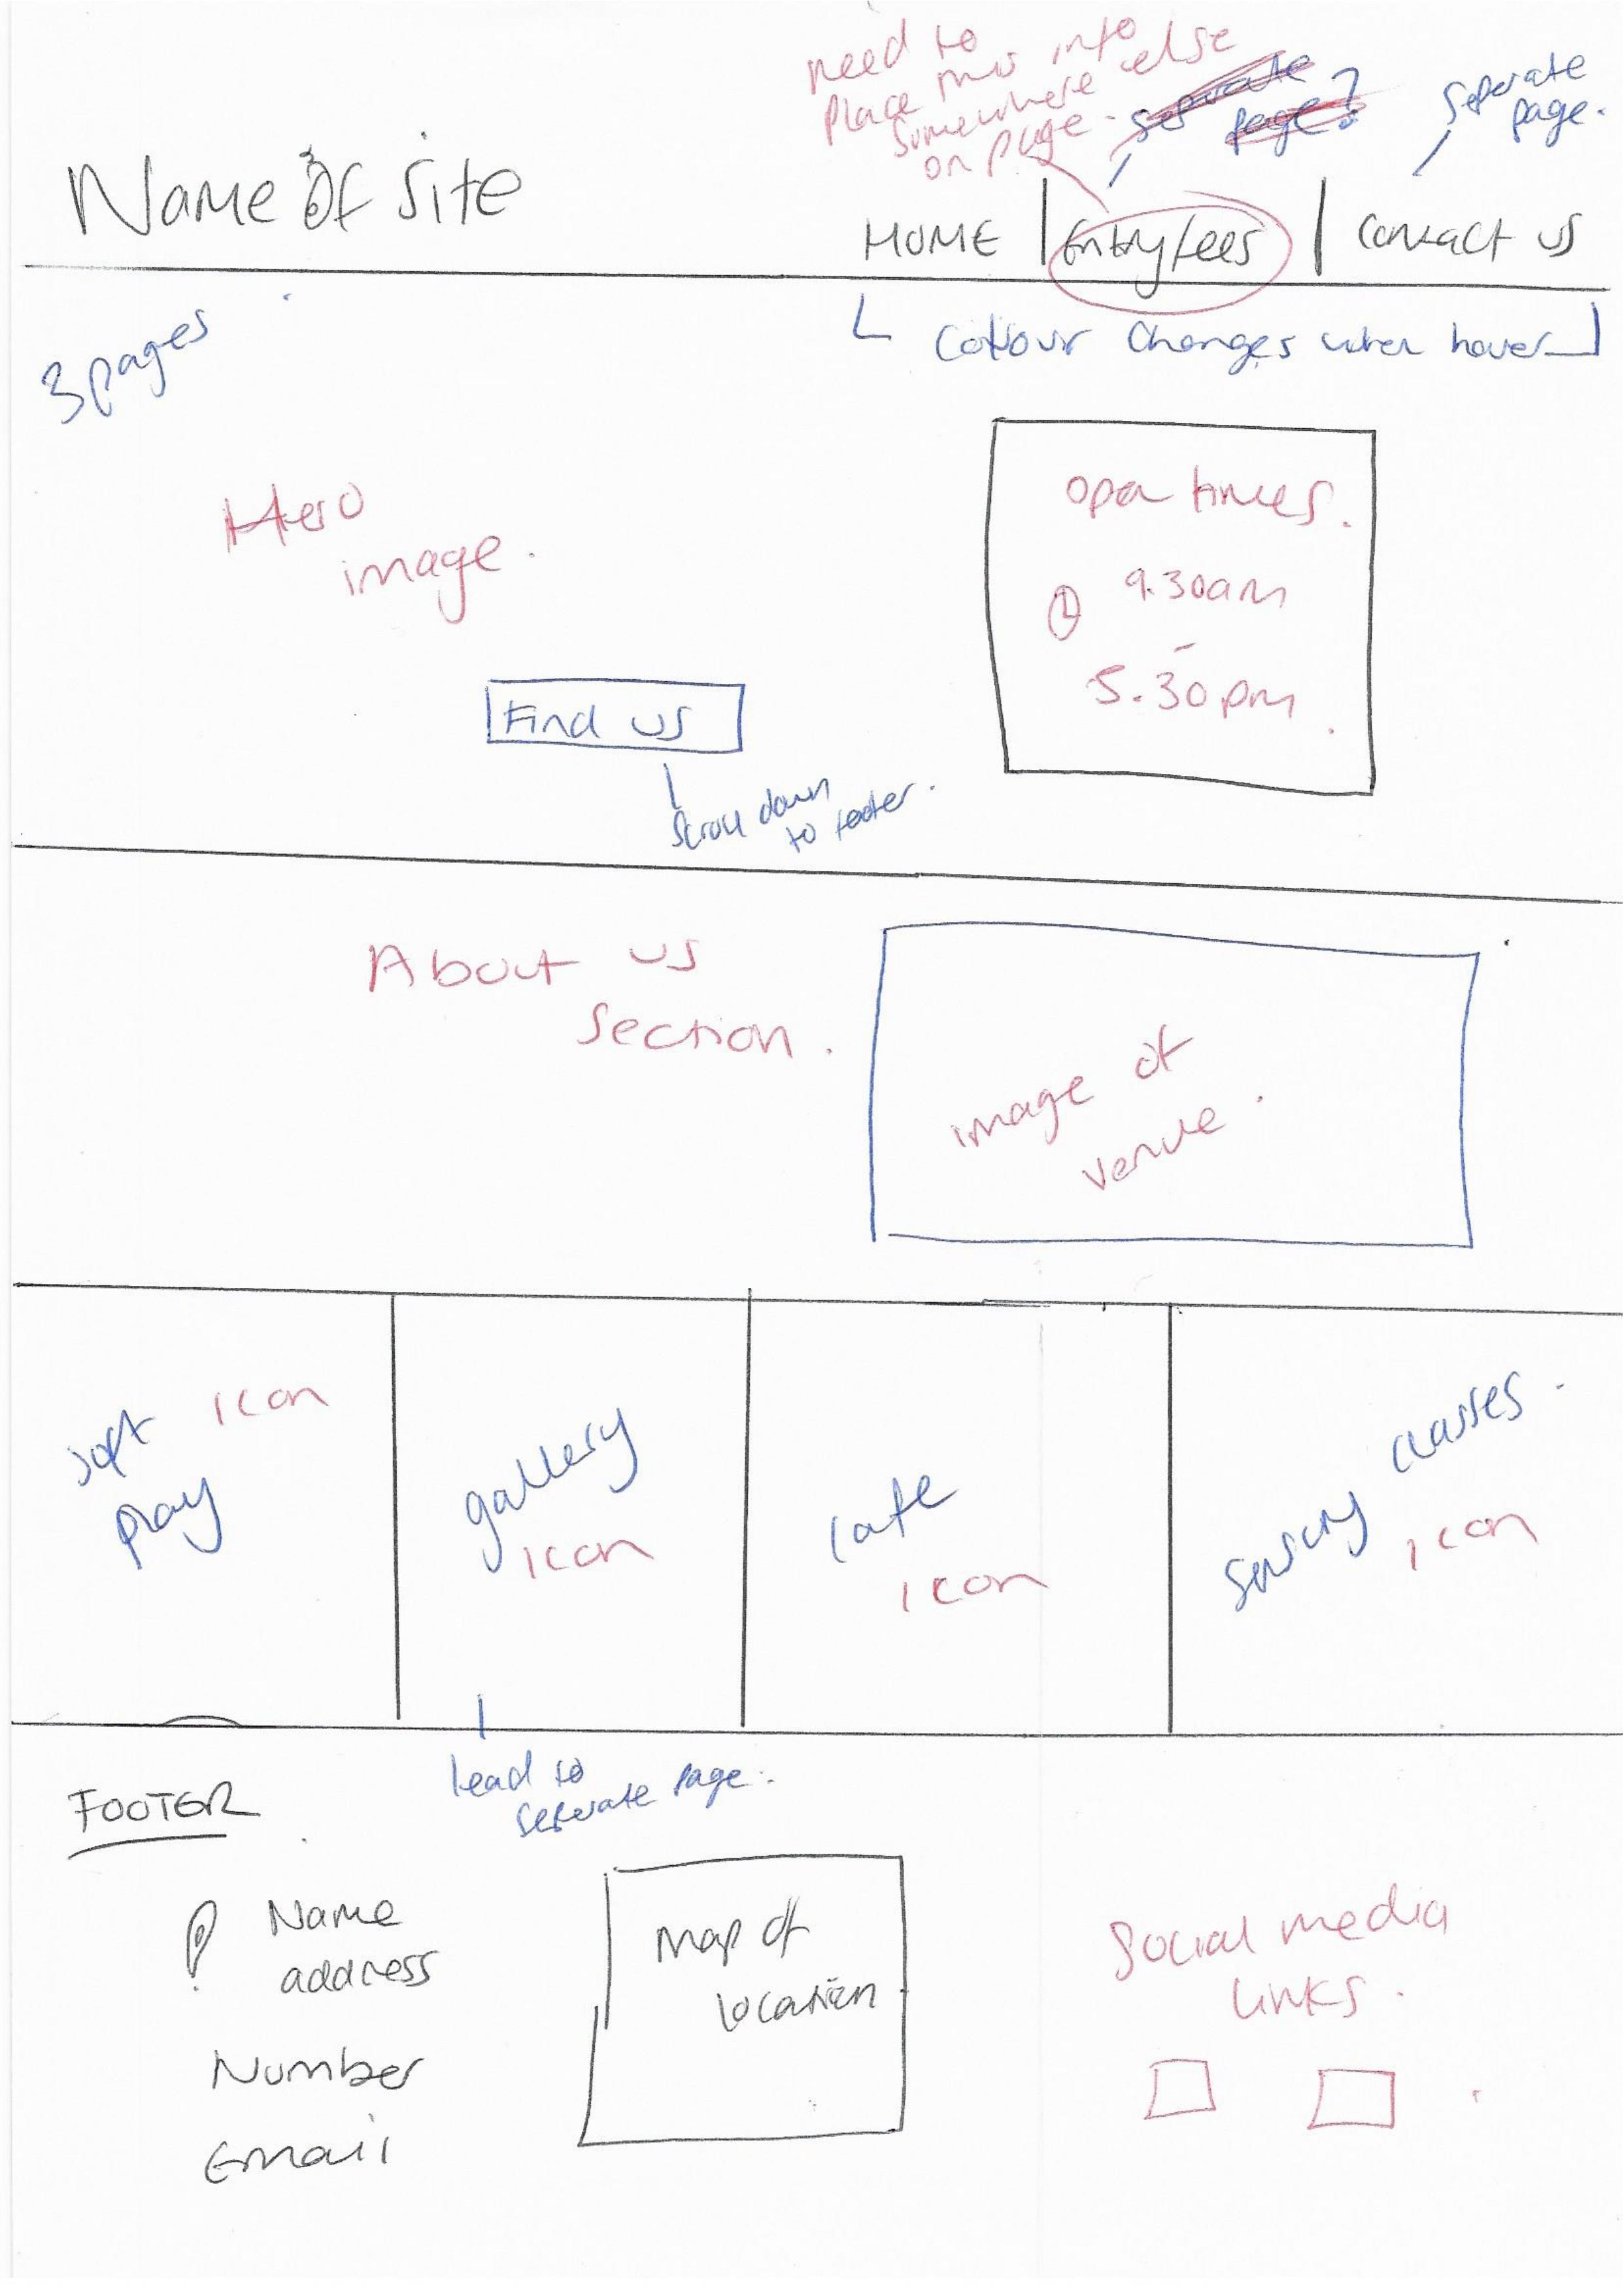 need to
place this info
somewhere else
on page.
seperate
page?
seperate
page.
Name of Site
HOME | Entry fees | Contact us
3 pages
Colour changes when hover
Hero
image.
open times.
9.30am
-
5.30pm.
Find us
Scroll down
to footer.
About us
Section.
image of
venue.
soft
play
icon
gallery
icon
cafe
icon
sensory classes.
icon
lead to
seperate page.
FOOTER
Name
address
Number
Email
Map of
location
Social media
links.